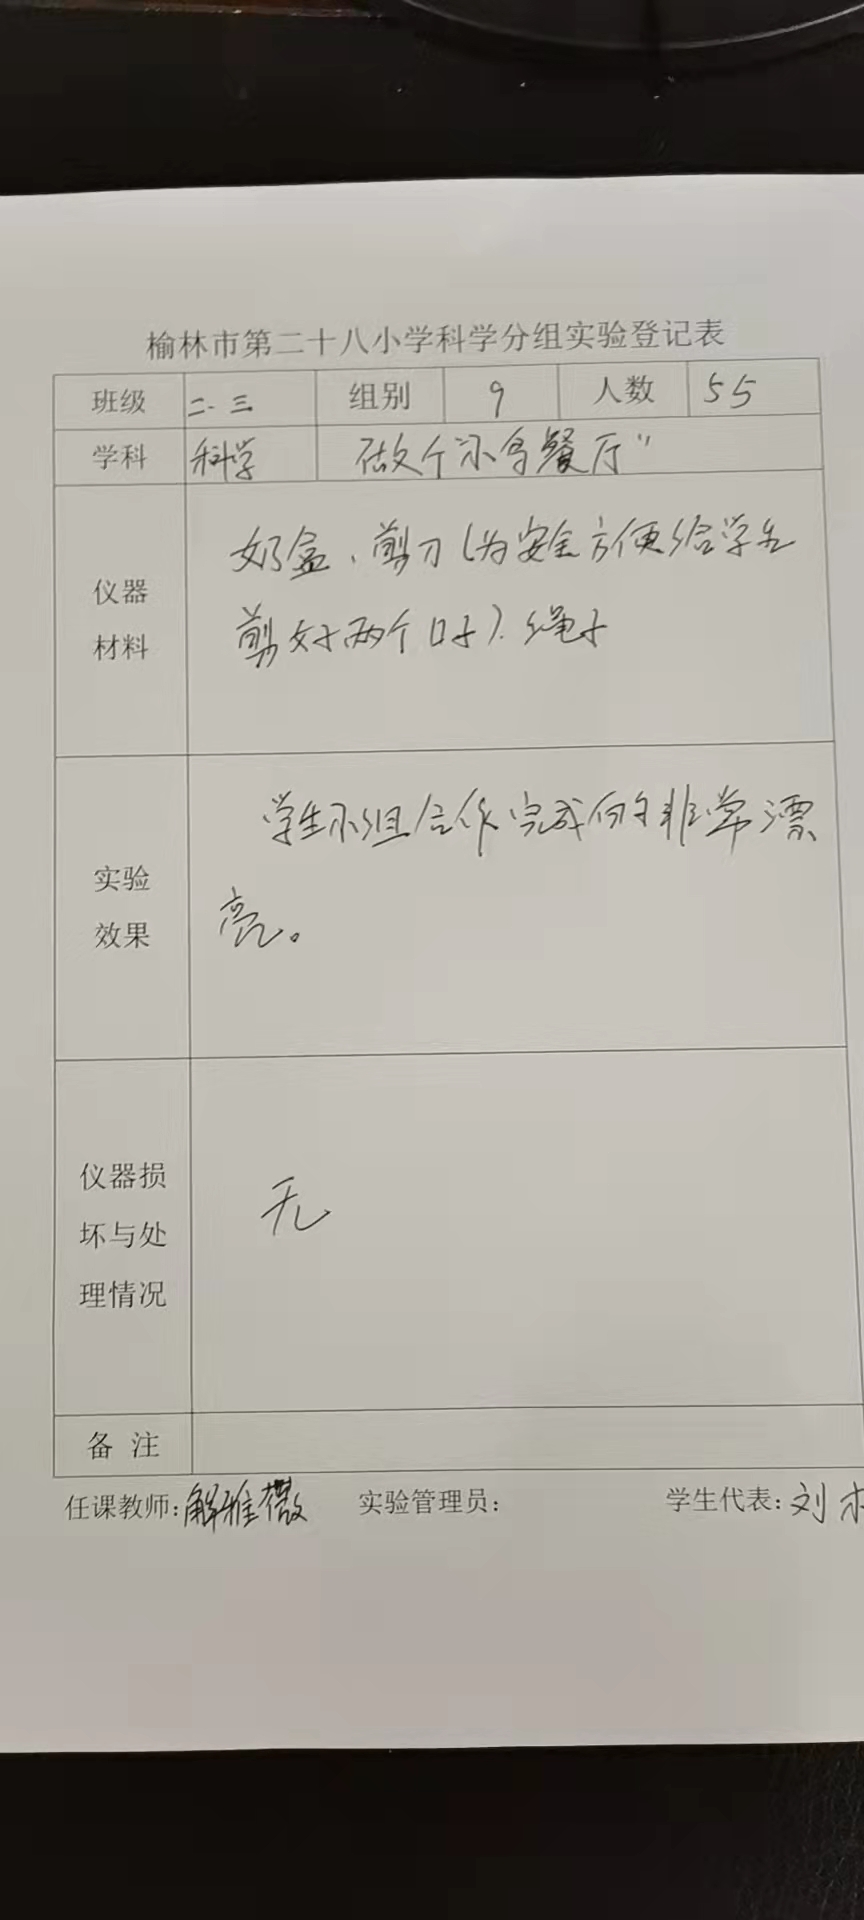 榆林市第二十八小学科学分组实验登记表
班级 二.三 组别 9 人数 55
学科 科学 做个“小鸟餐厅”
仪器
材料
奶盒、剪刀(为安全方便给学生
剪好两个口子).绳子
实验
效果
学生小组合作完成的非常漂
亮。
仪器损
坏与处
理情况
无
备 注
任课教师:解雅薇 实验管理员: 学生代表:刘